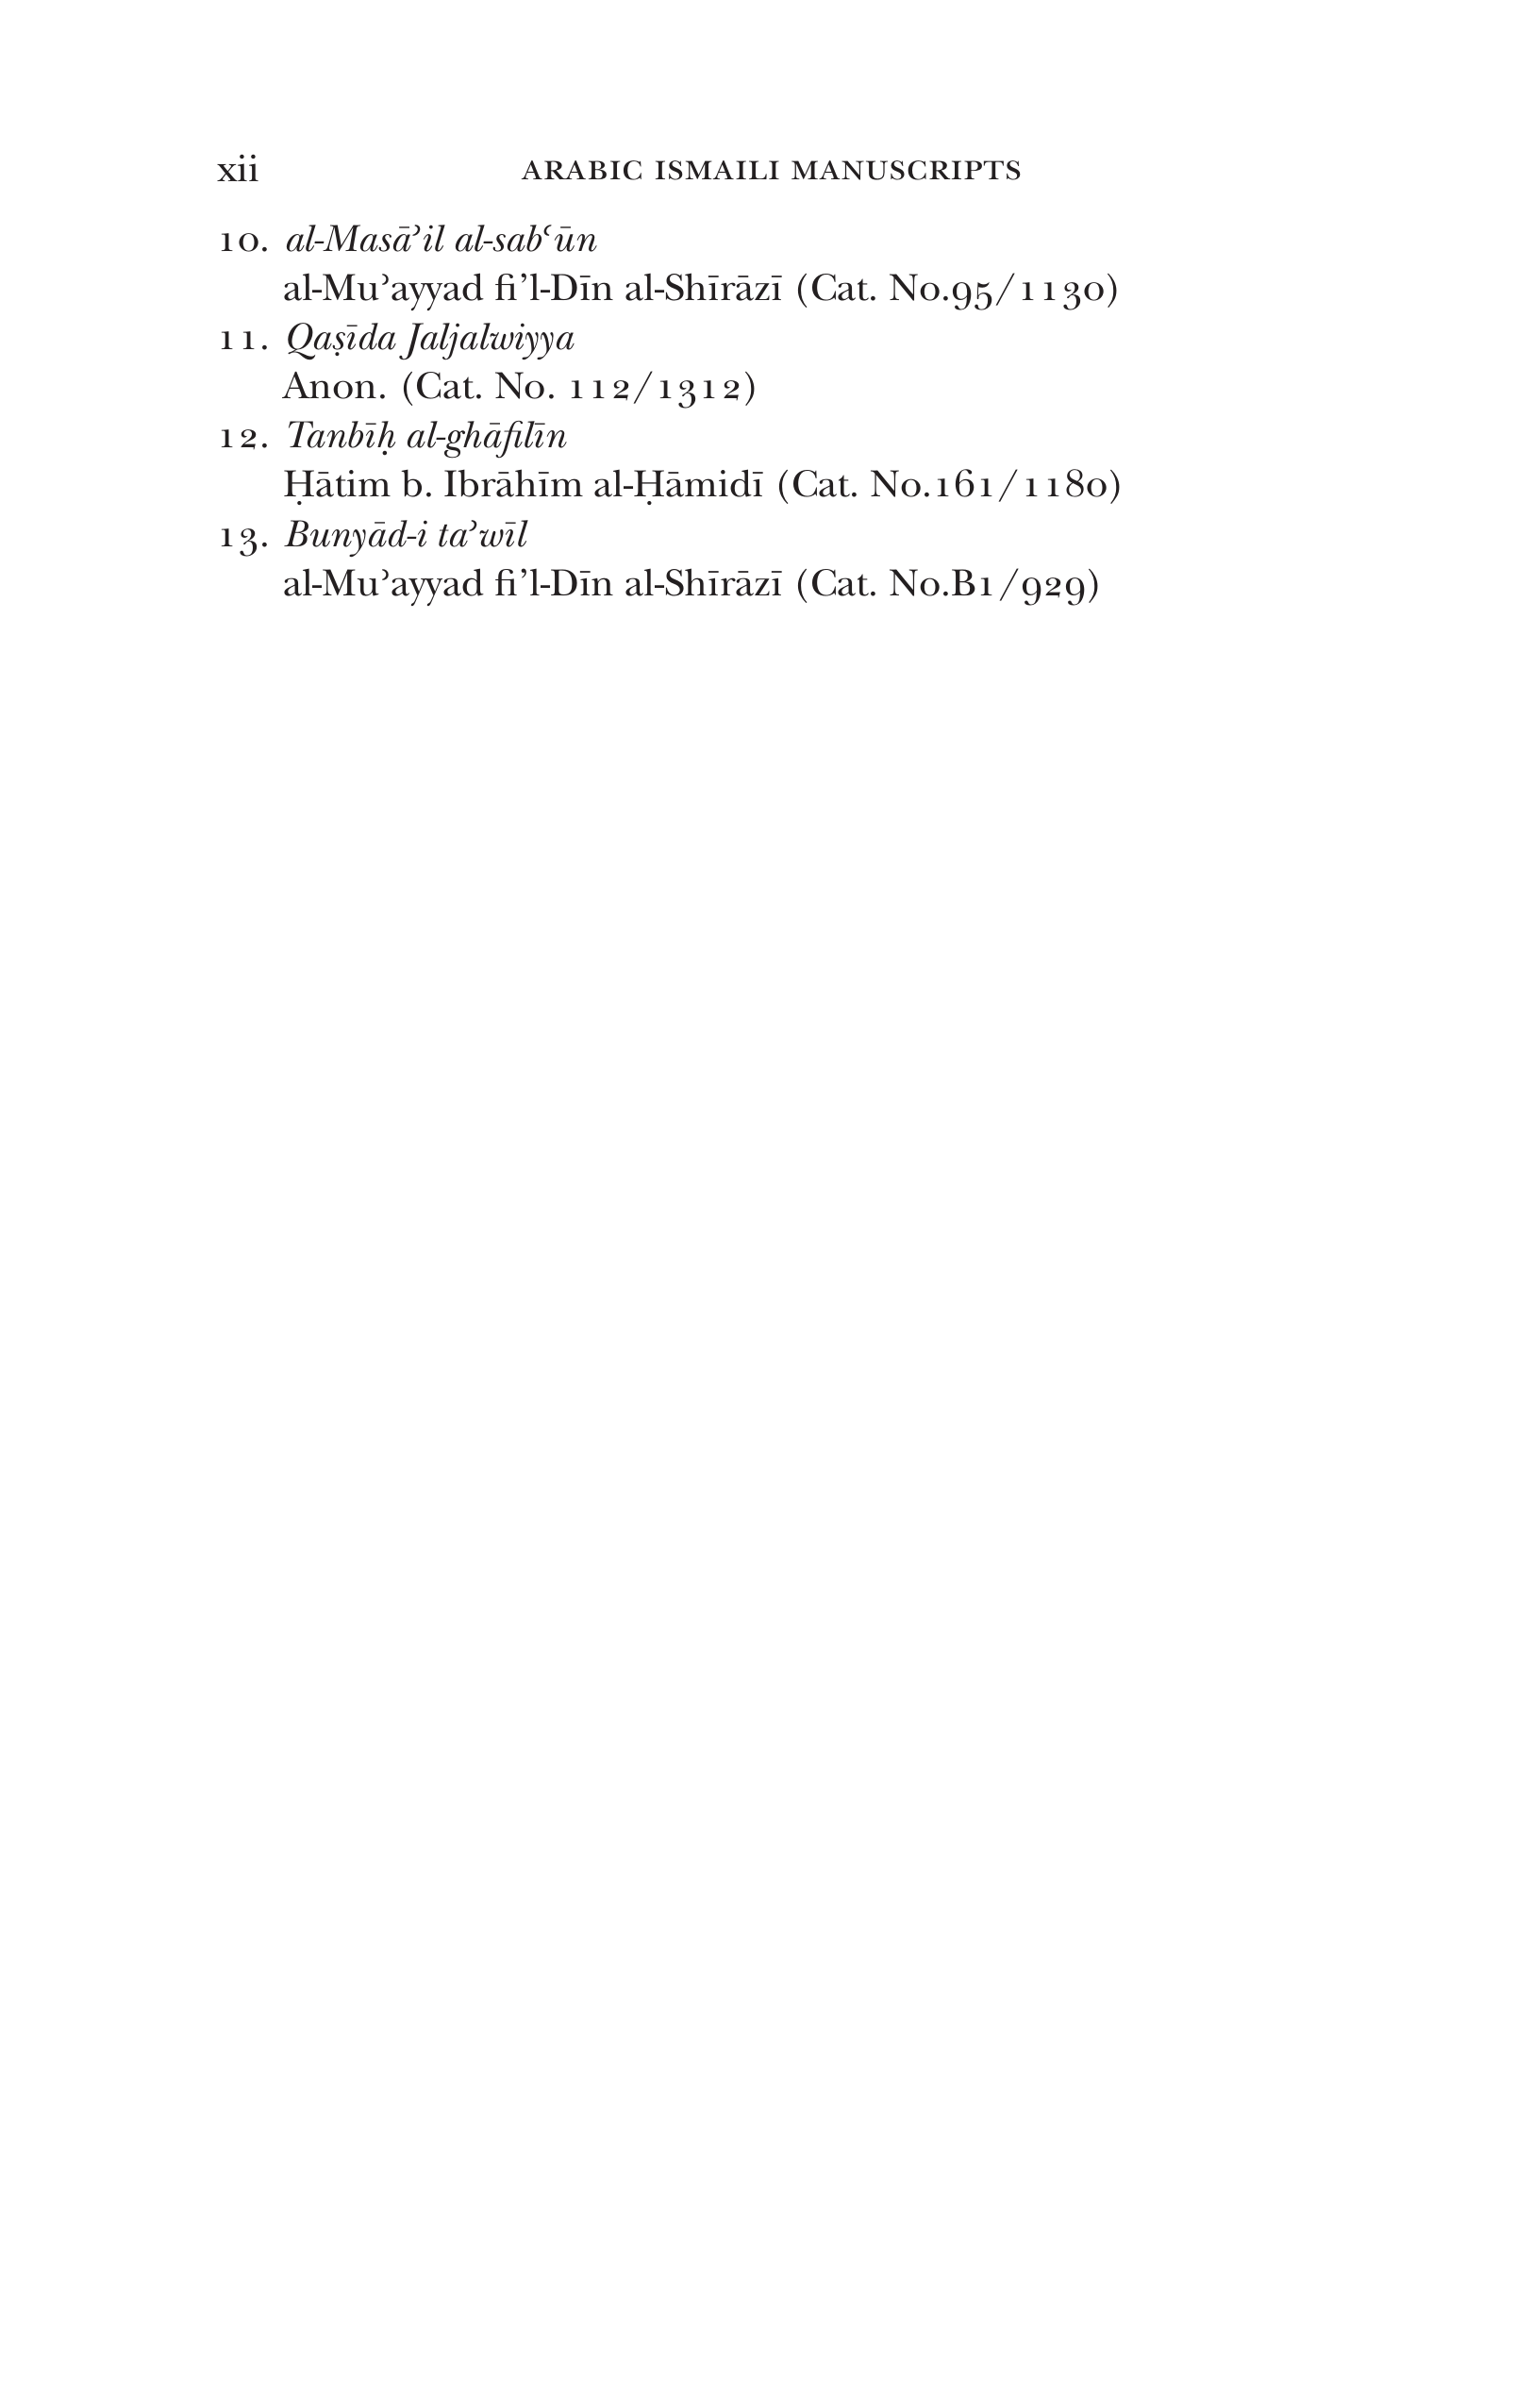 xii ARABIC ISMAILI MANUSCRIPTS
10. al-Masāʾil al-sabʿūn
al-Muʾayyad fi’l-Dīn al-Shīrāzī (Cat. No.95/1130)
11. Qaṣīda Jaljalwiyya
Anon. (Cat. No. 112/1312)
12. Tanbīḥ al-ghāfilīn
Ḥātim b. Ibrāhīm al-Ḥāmidī (Cat. No.161/1180)
13. Bunyād-i taʾwīl
al-Muʾayyad fi’l-Dīn al-Shīrāzī (Cat. No.B1/929)